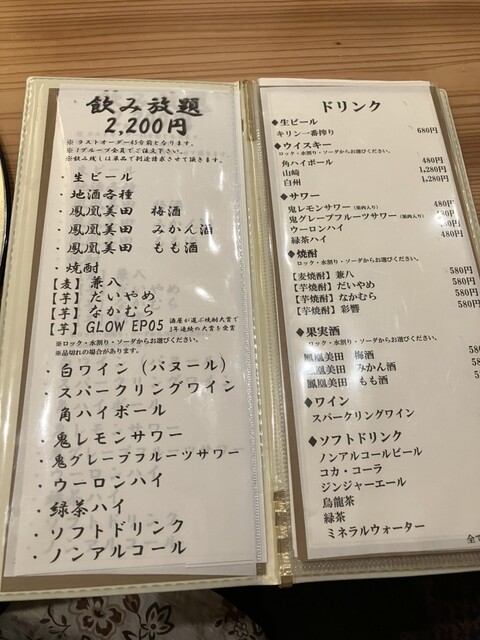 飲み放題
2,200円
※ラストオーダー45分前となります。
※1グループ全員でご注文下さい。
※飲み残しは単品で別途請求させて頂きます。
・生ビール
・地酒各種
・鳳凰美田 梅酒
・鳳凰美田 みかん酒
・鳳凰美田 もも酒
・焼酎
【麦】兼八
【芋】だいやめ
【芋】なかむら
【芋】GLOW EP05 酒屋が選ぶ焼酎大賞で
3年連続の大賞を受賞
※ロック・水割り・ソーダからお選びください。
※品切れの場合があります。
・白ワイン(バヌール)
・スパークリングワイン
・角ハイボール
・鬼レモンサワー
・鬼グレープフルーツサワー
・ウーロンハイ
・緑茶ハイ
・ソフトドリンク
・ノンアルコール
ドリンク
◆生ビール
キリン一番搾り 680円
◆ウイスキー
ロック・水割り・ソーダからお選びください。
角ハイボール 480円
山崎 1,280円
白州 1,280円
◆サワー
鬼レモンサワー(果肉入り) 480円
鬼グレープフルーツサワー(果肉入り) 480円
ウーロンハイ 480円
緑茶ハイ 480円
◆焼酎
ロック・水割り・ソーダからお選びください。
【麦焼酎】兼八 580円
【芋焼酎】だいやめ 580円
【芋焼酎】なかむら 580円
【芋焼酎】彩響 580円
◆果実酒
ロック・水割り・ソーダからお選びください。
鳳凰美田 梅酒
鳳凰美田 みかん酒
鳳凰美田 もも酒
◆ワイン
スパークリングワイン
◆ソフトドリンク
ノンアルコールビール
コカ・コーラ
ジンジャーエール
烏龍茶
緑茶
ミネラルウォーター
全て